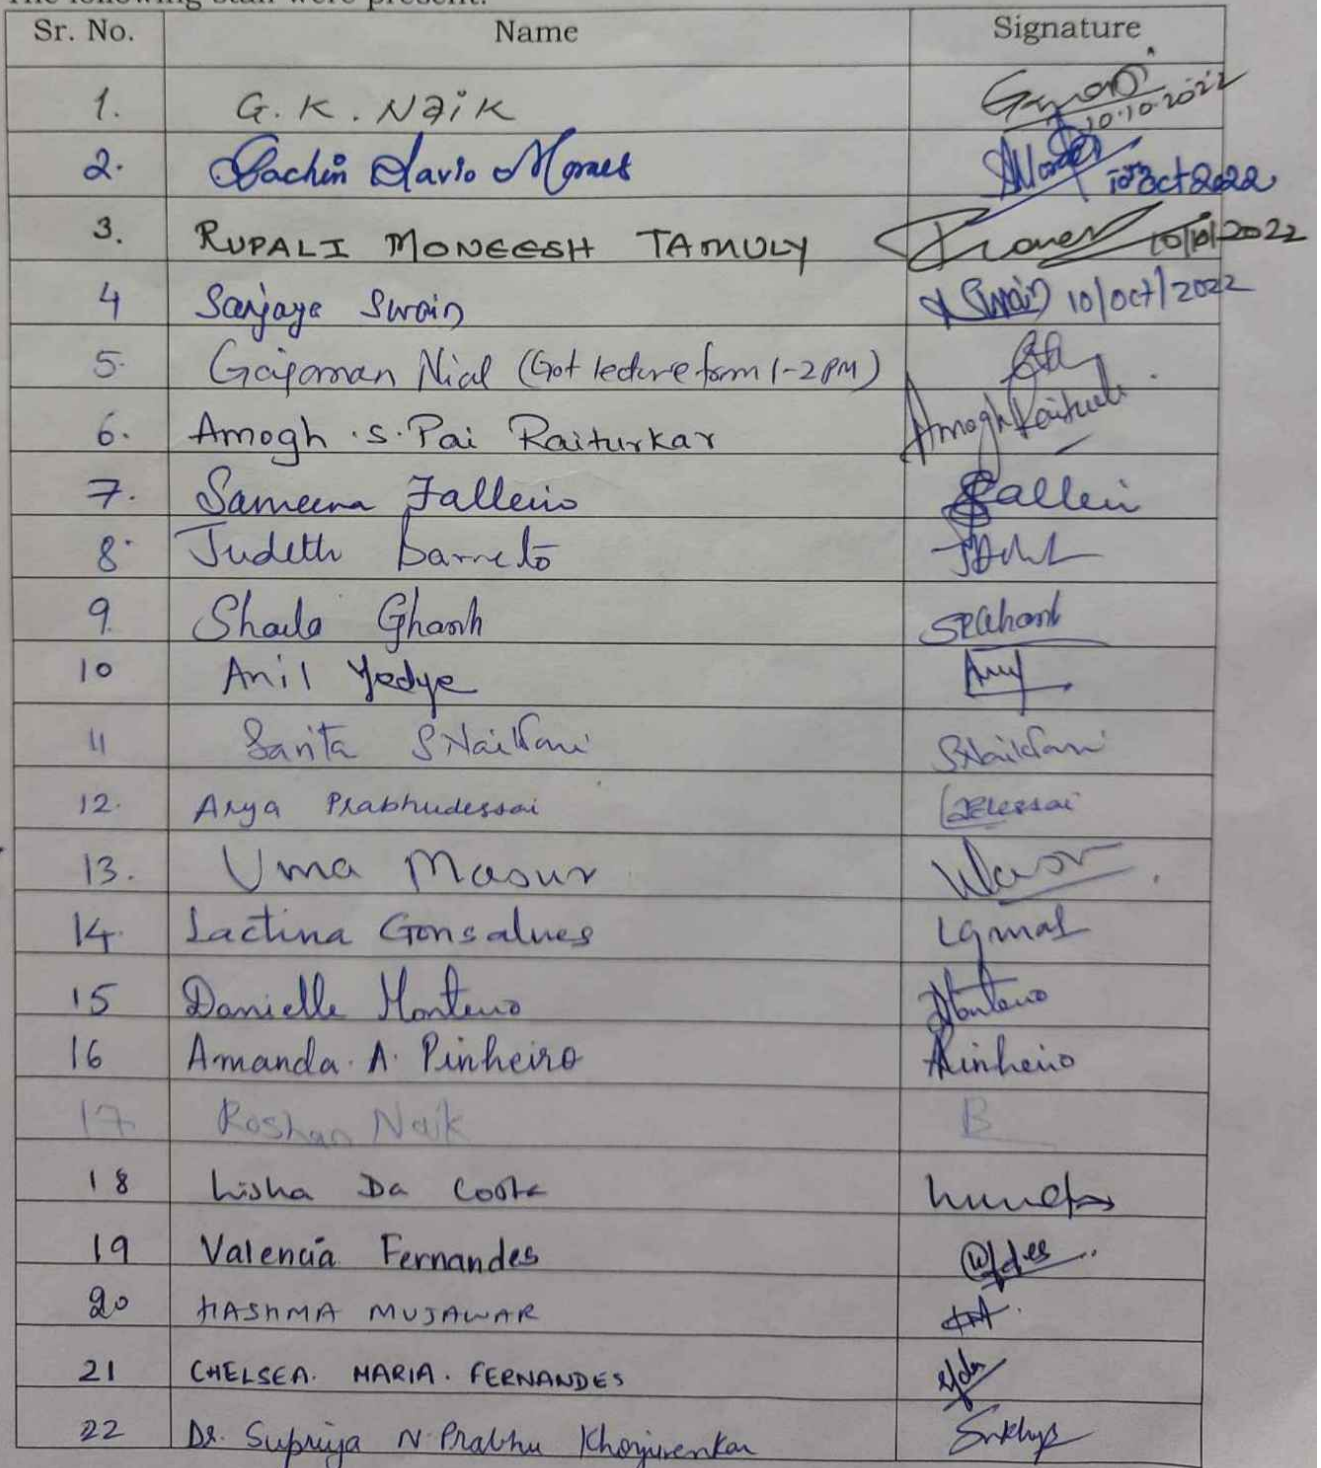 The following staff were present:
Sr. No. Name Signature
1. G. K. Naik 10.10.2022
2. Sachin Savio Moraes 10 Oct 2022
3. RUPALI MONEESH TAMULY 10/10/2022
4 Sanjaya Swain Swain 10/Oct/2022
5. Gajanan Nial (Got lecture form 1-2 PM)
6. Amogh .S. Pai Raiturkar Amogh Raiturk
7. Sameena Falleiro Fallein
8. Judeth Barreto
9. Shaila Ghanti
10 Anil Yedye
11 Sarita S Naik Tari
12. Arya Prabhudessai
13. Uma Masur
14. Lactina Gonsalves
15 Danielle Monteiro Monteiro
16 Amanda. A. Pinheiro Pinheiro
17 Roshan Naik
18 Lisha Da Costa
19 Valencia Fernandes
20 HASHMA MUJAWAR
21 CHELSEA. MARIA. FERNANDES
22 Dr. Supriya N Prabhu Khorjuvenkar